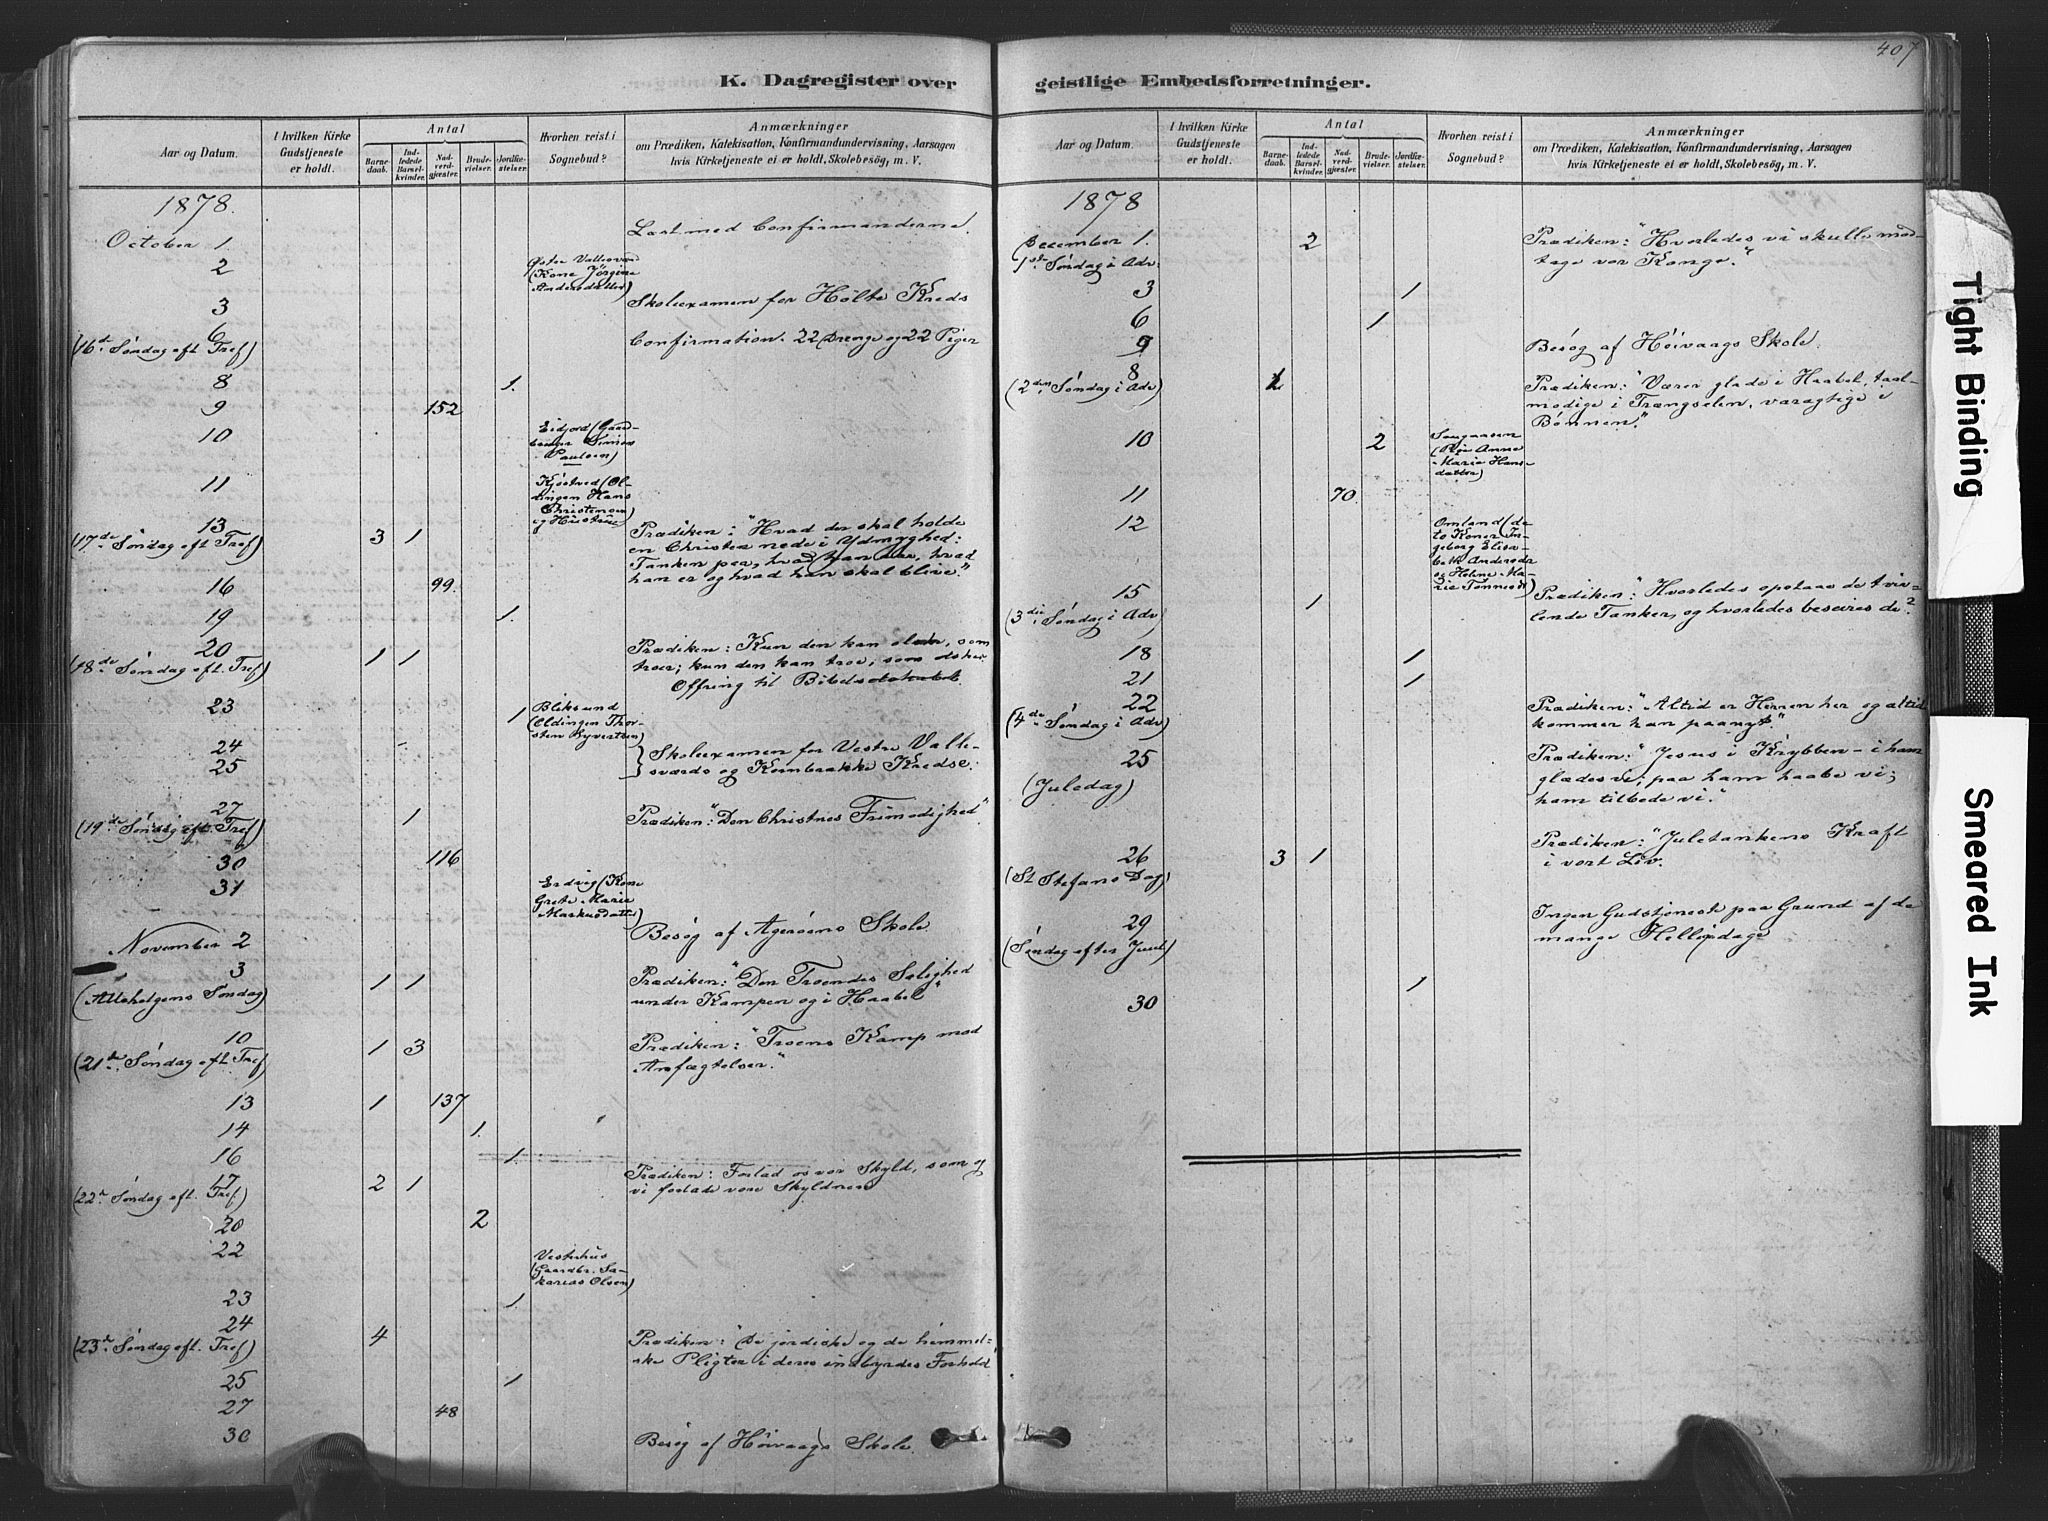 407
K. Dagregister over
Aar og Datum.
I hvilken Kirke Gudstjeneste er holdt.
Antal
Barnedaab.
Indledede Barselkvinder.
Nadverdgjæster.
Brudevielser.
Jordfæstelser.
Hvorhen reist i Sognebud?
Anmærkninger
om Prædiken, Katekisation, Konfirmandundervisning, Aarsagen
hvis Kirketjeneste ei er holdt, Skolebesög, m. V.
1878.
October 1. Læst med Confirmanderne.
2 Østre Vallesværd
(Kone Jørgine
Andersdatter)
3 Skoleexamen for Hølte Kreds
6
(16de Søndag eft. Tref) Confirmation. 22 Drenge og 22 Piger
8 1.
9 152
10 Eidjord (Gaardbruger Simon
Paulsen)
11 Kjøstved (Oldingen Hans
Christensen
og Hustrue)
13
(17de Søndag eft Tref) 3 1 Prædiken: "Hvad der skal holde
en Christen nede i Ydmyghed:
Tanken paa, hvad han var, hvad
han er og hvad han skal blive."
16 99.
19 1.
20
(18de Søndag eft. Tref) 1 1 Prædiken: Kun den kan elske, som
troer; kun den kan troe, som elsker
Offring til Bibelselskabet.
23 1 Bliksund
(Oldingen Thorsten Syvertsen)
24
25 Skoleexamen for Vestre Vallesværds og Kornbrække Kredse.
27
(19de Søndag eft. Tref) 1 Prædiken: "Den Christnes Frimodighed"
30 116
31 Erdvig (Kone
Grete Marie
Markusdatter)
November 2 Besøg af Agerøens Skole
3
(Allehelgens Søndag) 1 1 Prædiken: "Den Troendes Salighed
under Kampen og i Haabet"
10
(21de Søndag eft. Tref) 1 3 Prædiken: "Troens Kamp mod
Anfægtelser."
13 1 137
14 1.
16 1.
17
(22de Søndag eft. Tref) 2 1 Prædiken: Forlad os vor Skyld, som og
vi forlade vore Skyldnere
20 2
22 Vesterhus
(Gaardbr. Sakarias Olsen)
23 1.
24
(23de Søndag eft. Tref) 4 Prædiken: "De jordiske og de himmelske Pligter i deres indbyrdes Forhold
25 1
27 48
30 Besøg af Høivaags Skole.
geistlige Embedsforretninger.
Aar og Datum.
I hvilken Kirke Gudstjeneste er holdt.
Antal
Barnedaab.
Indledede Barselkvinder.
Nadverdgjæster.
Brudevielser.
Jordfæstelser.
Hvorhen reist i Sognebud?
Anmærkninger
om Prædiken, Katekisation, Konfirmandundervisning, Aarsagen
hvis Kirketjeneste ei er holdt, Skolebesög, m. V.
1878
December 1. 2 Prædiken: "Hvorledes vi skulle mod-
1ste Søndag i Adv. tage vor Konge."
3 1
6 1
9 Besøg af Høivaags Skole.
8
(2den Søndag i Adv) 1 Prædiken: "Værer glade i Haabet, taalmodige i Trængselen, varagtige i
Bønnen."
10 2 (Pige Anne
Marie Hansdatter)
11 70.
12 Omland (de
to Koner Ingeborg Elisabeth Andersdr
og Helene Marie Tønnesdr)
15
(3die Søndag i Adv) 1 Prædiken: "Hvorledes opstaae de tvivlende Tanker, og hvorledes beseires de?
18 1
21 1
22
(4de Søndag i Adv) Prædiken: "Altid er Herren her og altid
kommer han paanyt"
25
(Juledag) Prædiken: "Jesus i Krybben - i ham
glædes vi; paa ham haabe vi;
ham tilbede vi."
26 3 1 Prædiken: "Juletankens Kraft
(St Stefans Dag) i vort Liv.
29
(Søndag efter Juul) Ingen Gudstjeneste paa Grund af de
mange Helligdage
30 1
Tight Binding
Smeared Ink